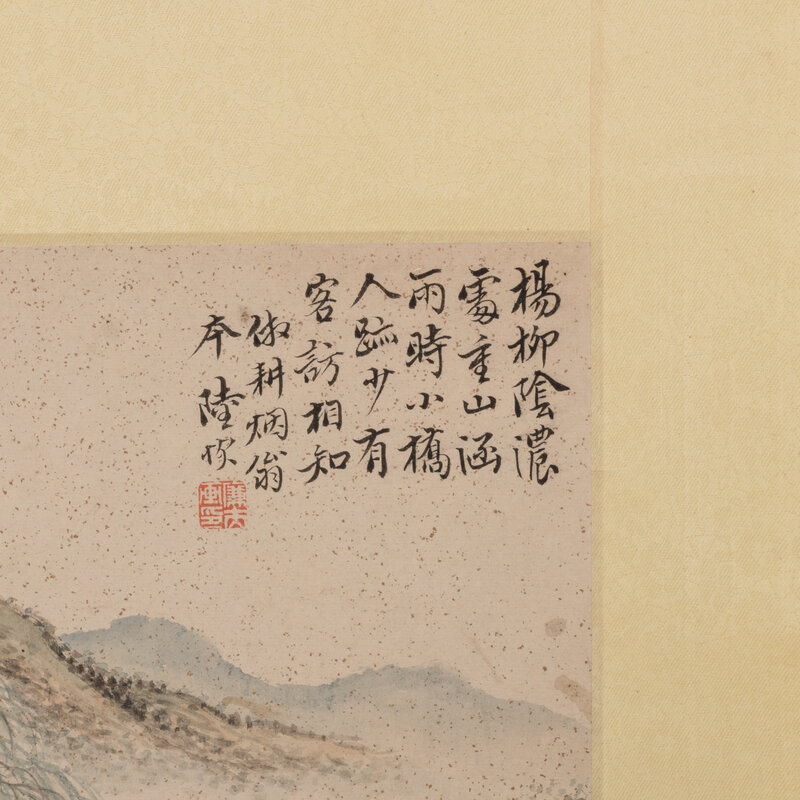 楊柳陰濃
處重山涵
雨時小橋
人跡少有
客訪相知
倣耕烟翁
本 陸恢
廉夫